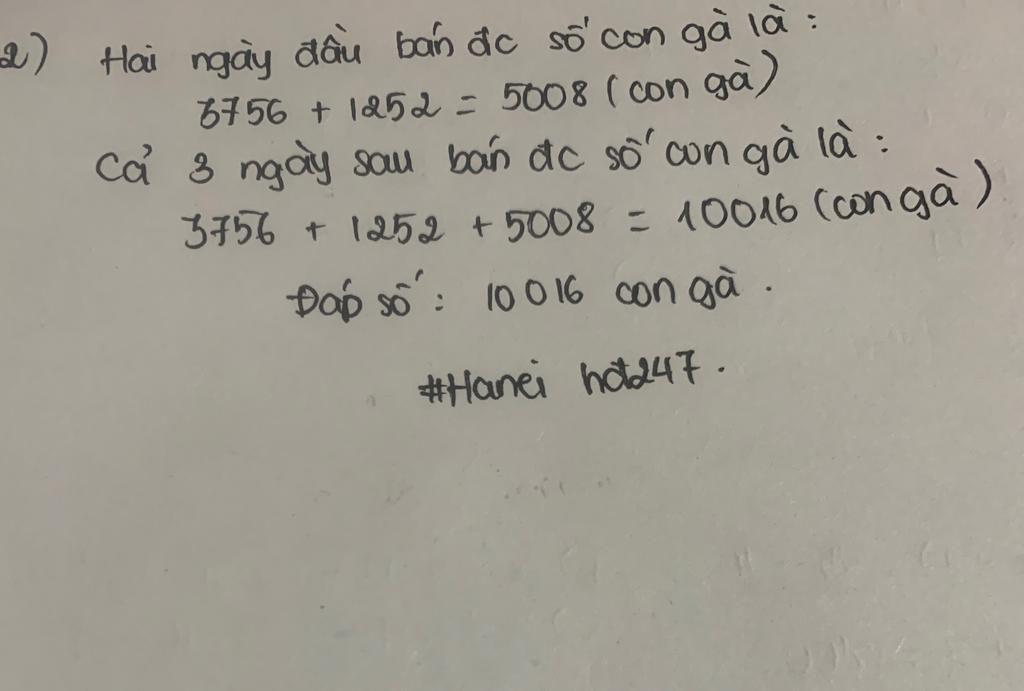 2) Hai ngày đầu bán đc số con gà là :
3756 + 1252 = 5008 (con gà)
Cả 3 ngày sau bán đc số con gà là :
3756 + 1252 + 5008 = 10016 (con gà)
Đáp số : 10016 con gà .
#Hanei hdt247 .